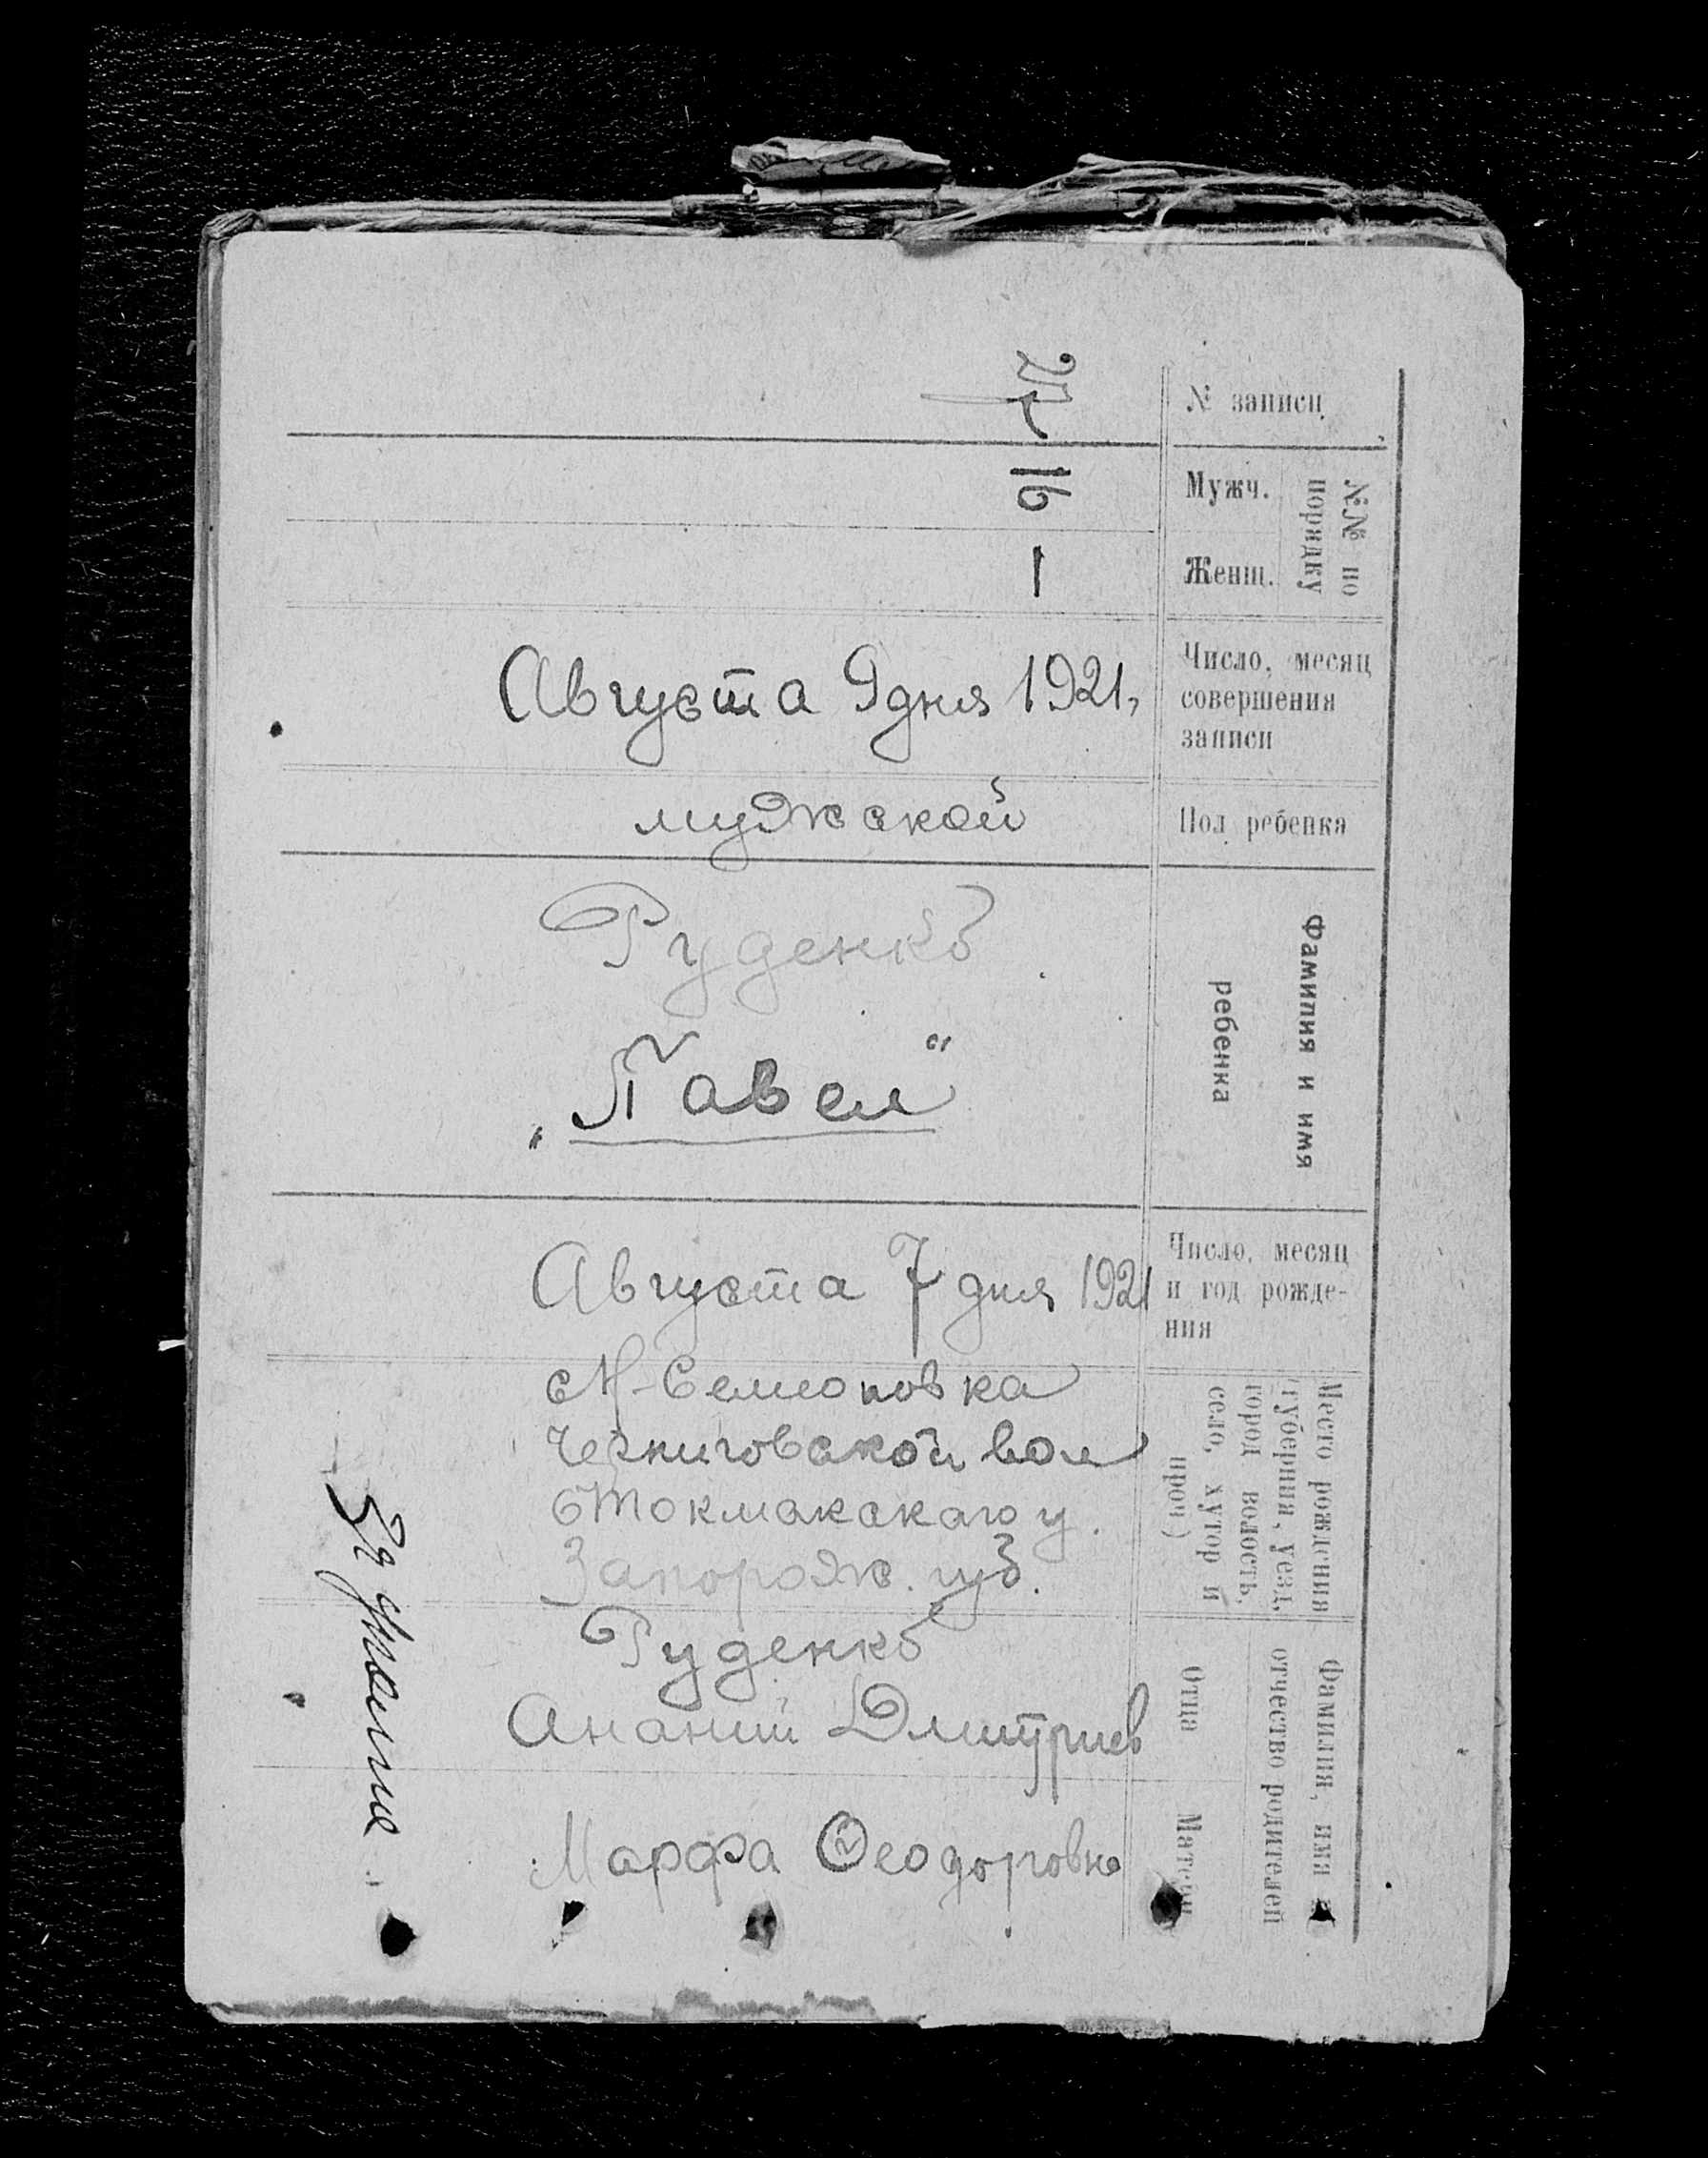 № записи
27
№№ по порядку
Мужч.
16
Женщ.
—
Число, месяц совершения записи
Августа 9 дня 1921,
Пол ребенка
мужской
Фамилия и имя ребенка
Руденко
„Павел“
Число, месяц и год рождения
Августа 7 дня 1921
Место рождения (губерния, уезд, город волость, село, хутор и проч)
Черниговской вол
Токмакскаго у.
Запорож. губ.
Фамилия, имя и отчество родителей
Отца
Руденко
Ананий Дмитриев
Матери
Марфа Феодоровна